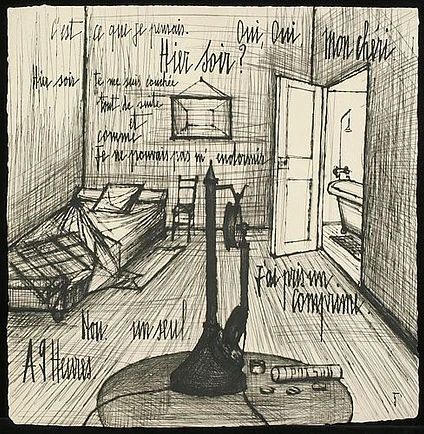 C'est ce que je pensais.
Oui, Oui, mon chéri
Hier soir ?
Hier soir Je me suis couchée
tout de suite
et
comme
Je ne pouvais pas m'endormir
J'ai pris un
comprimé.
Non. un seul
A 9 Heures